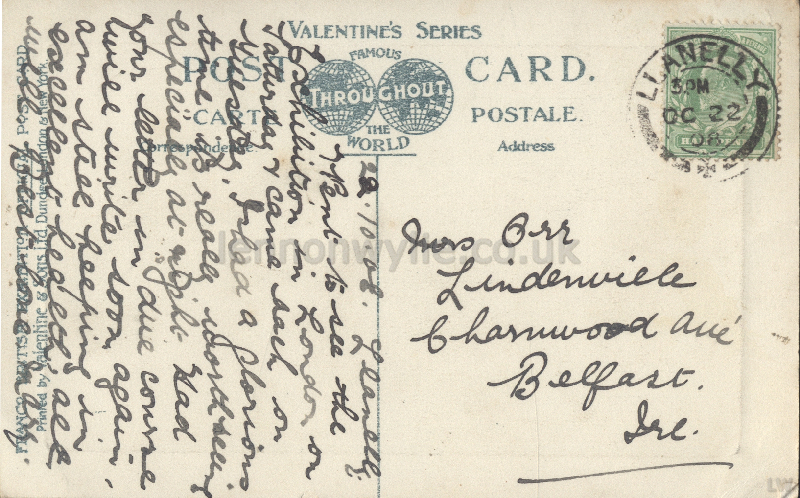 VALENTINE'S SERIES
FAMOUS
THROUGHOUT
THE
WORLD
POST CARD.
CARTE POSTALE.
Correspondence. Address
LLANELLY
3 PM
OC 22
08
22.10.08. Llanelly.
I Went to see the
Exhibition in London on
Saturday & came back on
Tuesday, I had a glorious
time its really worth seeing
especially at night. Had
your letter in due course
will write soon again.
am still keeping in
excellent health, all
Mrs Orr
Lindenville
Charnwood Ave
Belfast.
Ire.
Printed by Valentine & Sons Ltd Dundee London & New York
lennonwylie.co.uk
LW